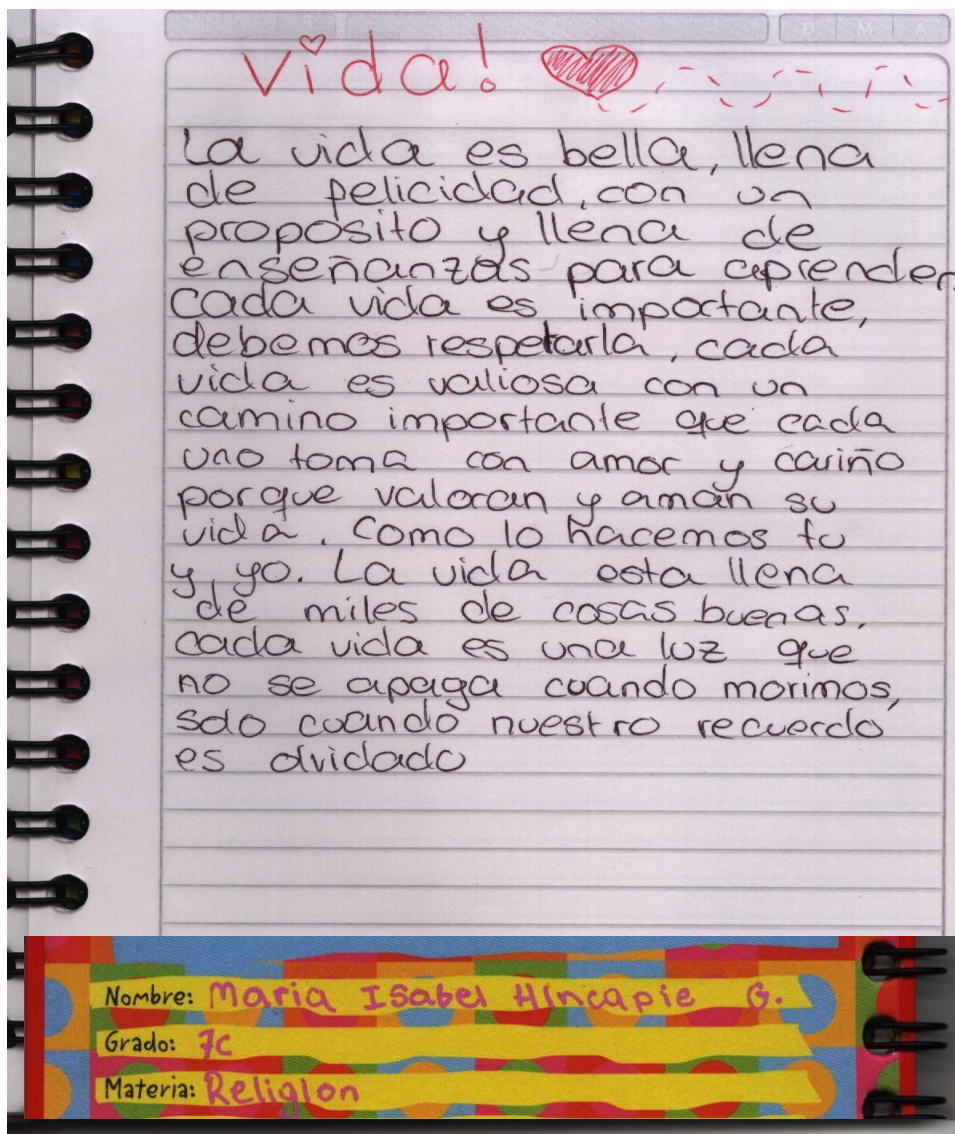 Vida!
La vida es bella, llena
de felicidad, con un
proposito y llena de
enseñanzas para aprender,
cada vida es importante,
debemos respetarla, cada
vida es valiosa con un
camino importante que cada
uno toma con amor y cariño
porque valoran y aman su
vida. Como lo hacemos tu
y yo. La vida esta llena
de miles de cosas buenas.
cada vida es una luz que
no se apaga cuando morimos,
solo cuando nuestro recuerdo
es olvidado
Nombre: Maria Isabel Hincapie G.
Grado: 7C
Materia: Religion